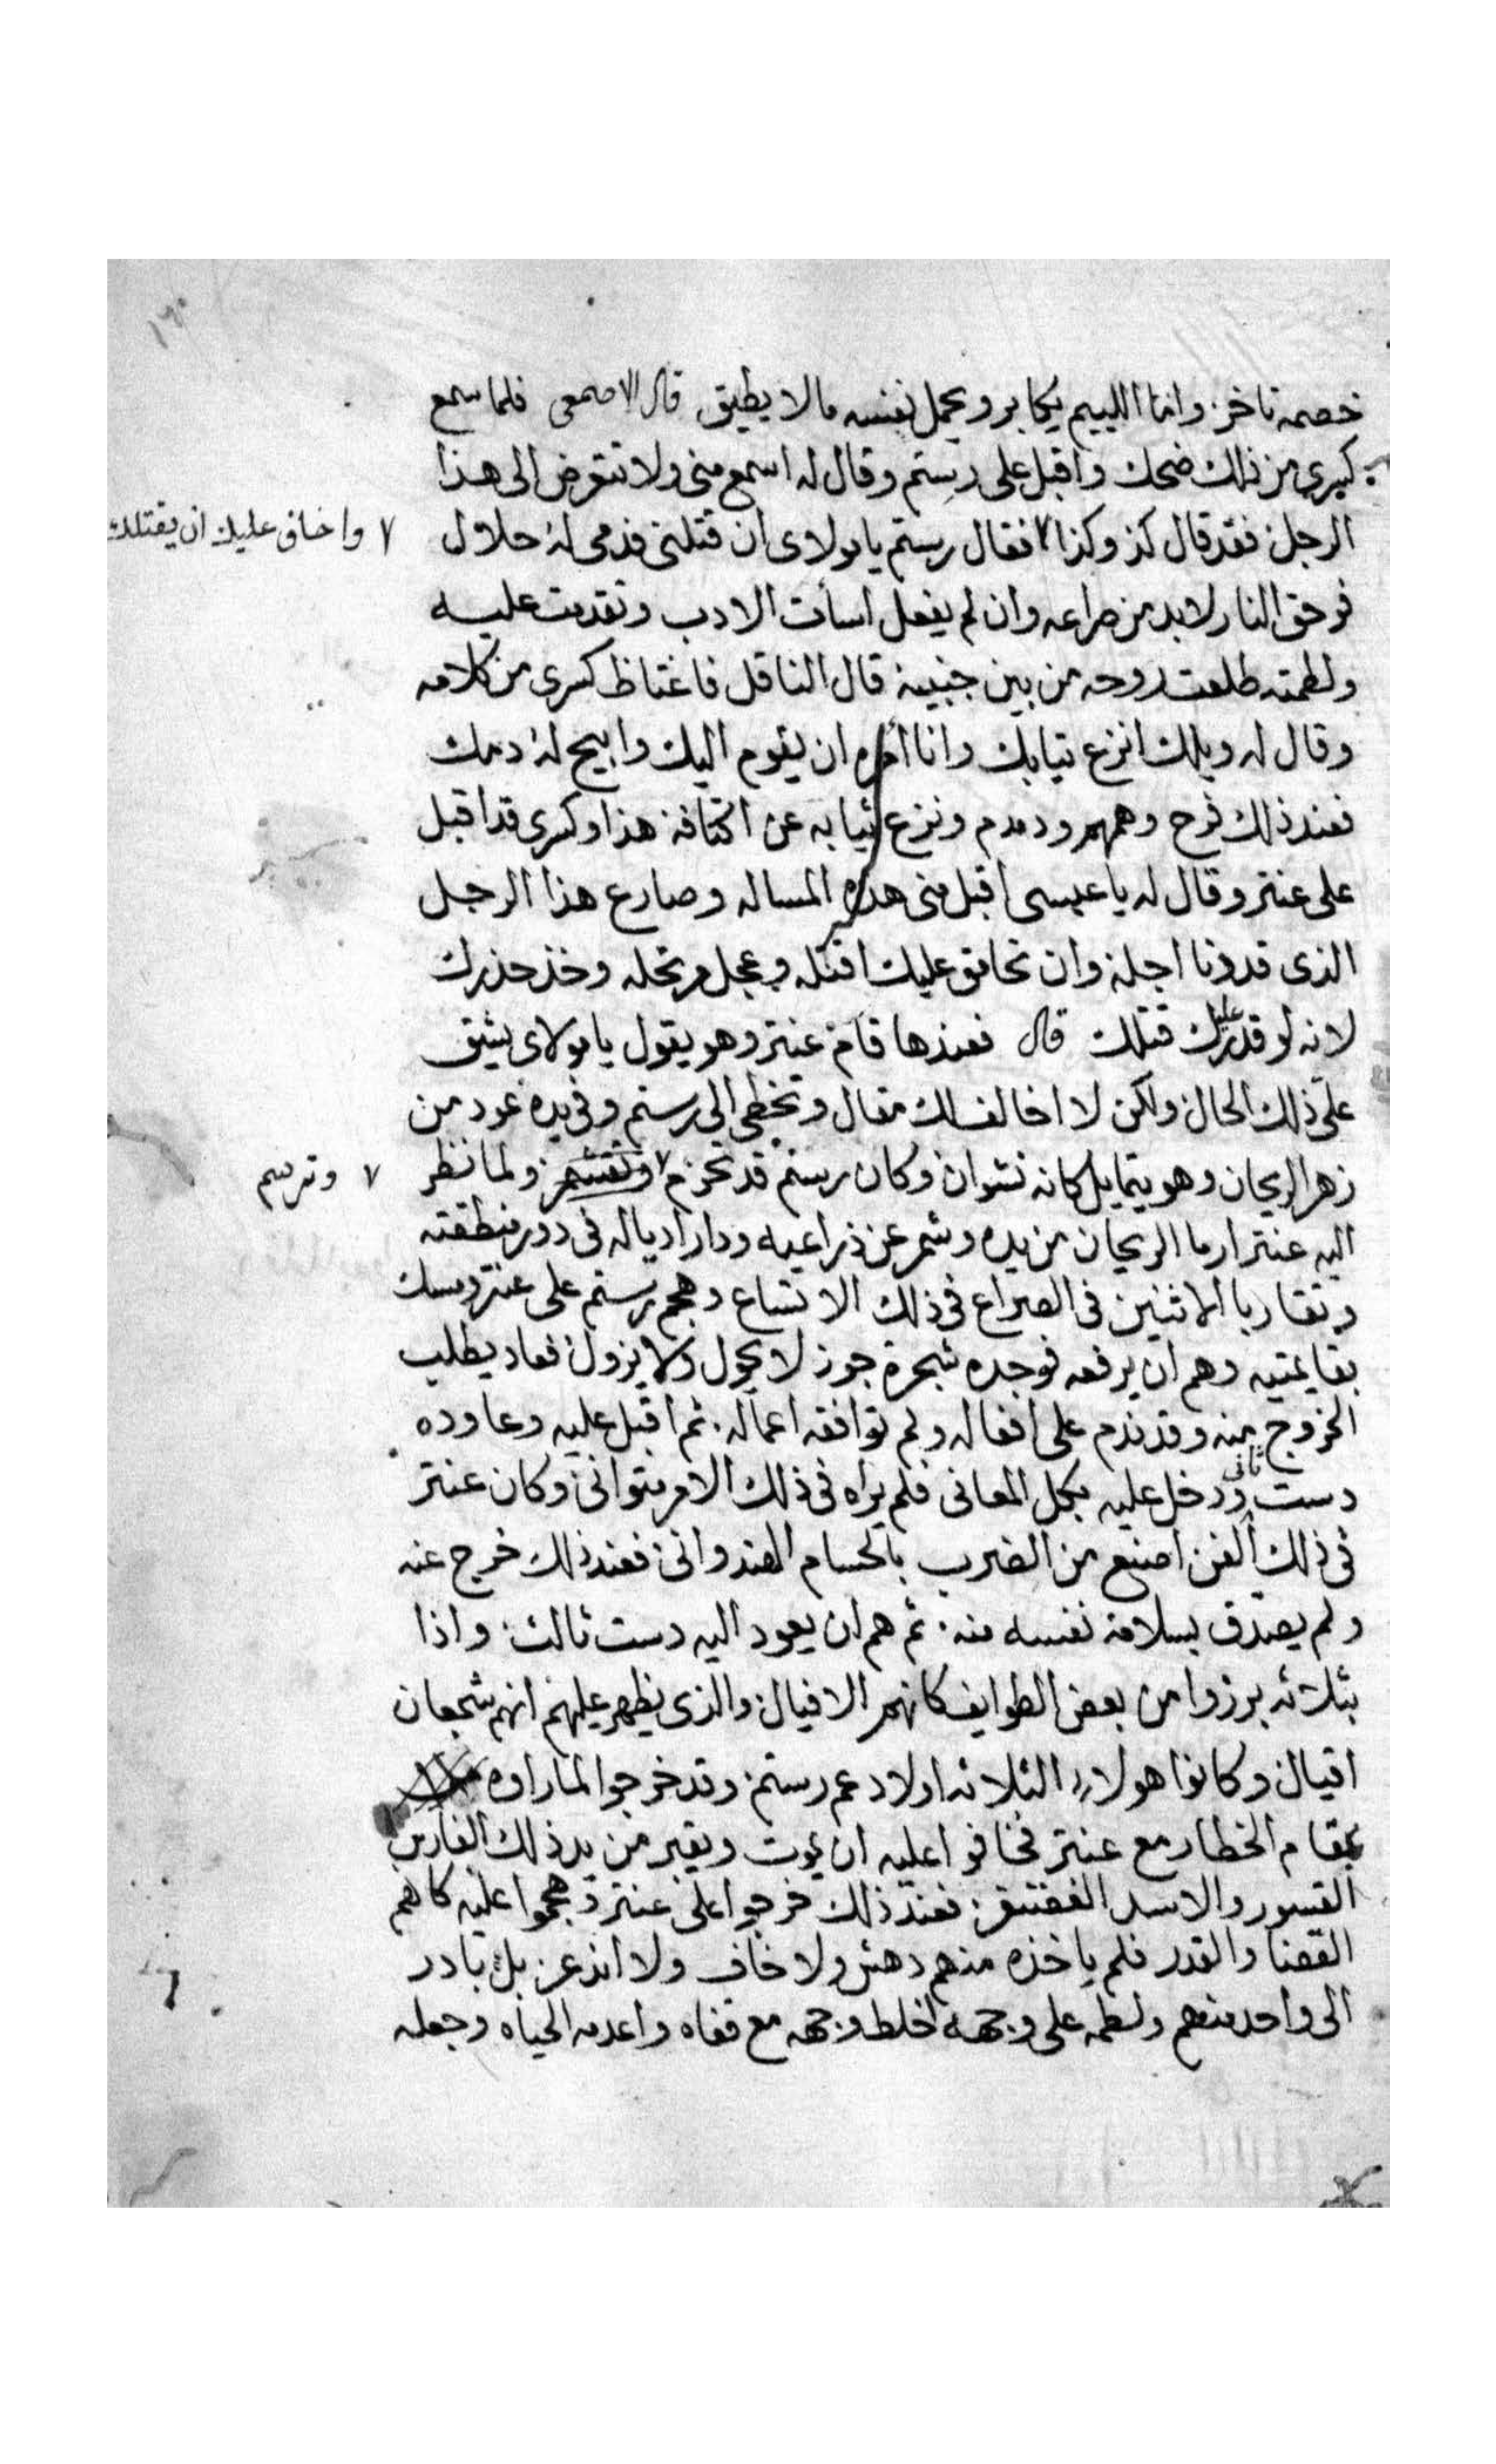 خصمه تاخر وانما اللييم يكابر ويحمل نفسه مالا يطيق قال الاصمعى فلما سمع
كسرى من ذلك ضحك واقبل على رستم وقال له اسمع منى ولا تتعرض الى هذا
الرجل فقد قال كذ وكذا ٧ فقال رستم يا مولاى ان قتلنى فدمى له حلال
٧ واخاف عليك ان يقتلك
فوحق النار لابد من صراعه وان لم يفعل اسأت الادب وتقدمت عليه
ولطمته طلعت روحه من بين جنبيه قال الناقل فاغتاظ كسرى من كلامه
وقال له ويلك انزع تيابك وانا أمره ان يقوم اليك وابيح له دمك
فعند ذلك فرح وهمهم ودمدم ونزع ثيابه عن اكتافه هذا وكسرى قد اقبل
على عنتر وقال له يا عبسى اقبل منى هذه المساله وصارع هذا الرجل
الذى قد دنا اجله وان تحامق عليك اقتله وعجل مرتحله وخذ حذرك
لانه لو قدر عليك قتلك قال فعندها قام عنتر وهو يقول يا مولاى يشق
على ذلك الحال ولكن لا اخالف لك مقال وتخطى الى رستم وفى يده عود من
زهر الريحان وهو يتمايل كانه نشوان وكان رستم قد تحزم ٧ ولما نظر
٧ وترسم
اليه عنتر ارما الريحان من يده وشمر عن ذراعيه ودار ادياله فى دور منطقته
وتقاربا الاثنين فى الصراع فى ذلك الاتساع وهجم رستم على عنتر ومسك
بقايمتيه وهم ان يرفعه فوجده شجرة جوز لا يحول ولا يزول فعاد يطلب
الخروج منه وقد ندم على افعاله ولم توافقه اعماله ثم اقبل عليه وعاوده
دست ثانى ودخل عليه بكل المعانى فلم يراه فى ذلك الامر متوانى وكان عنتر
فى ذلك الفن اصنع من الضرب بالحسام الهندوانى فعند ذلك خرج عنه
ولم يصدق بسلامة نفسه منه ثم هم ان يعود اليه دست ثالث واذا
بثلاثه برزوا من بعض الطوايف كانهم الافيال والذى يظهر عليهم انهم شجعان
اقيال وكانوا هولاء الثلاثه اولاد عم رستم وقد خرجوا لما راوه
بمقام الخطار مع عنتر فخافوا عليه ان يموت ويقبر من يد ذلك الفارس
القسور والاسد الغضنفر فعند ذلك خرجوا على عنتر وهجموا عليه كانهم
القضا والقدر فلم ياخذه منهم دهش ولا خاف ولا انذعر بل بادر
الى واحد منهم ولطمه على وجهه اخلط وجهه مع قفاه واعدمه الحياه وجعله